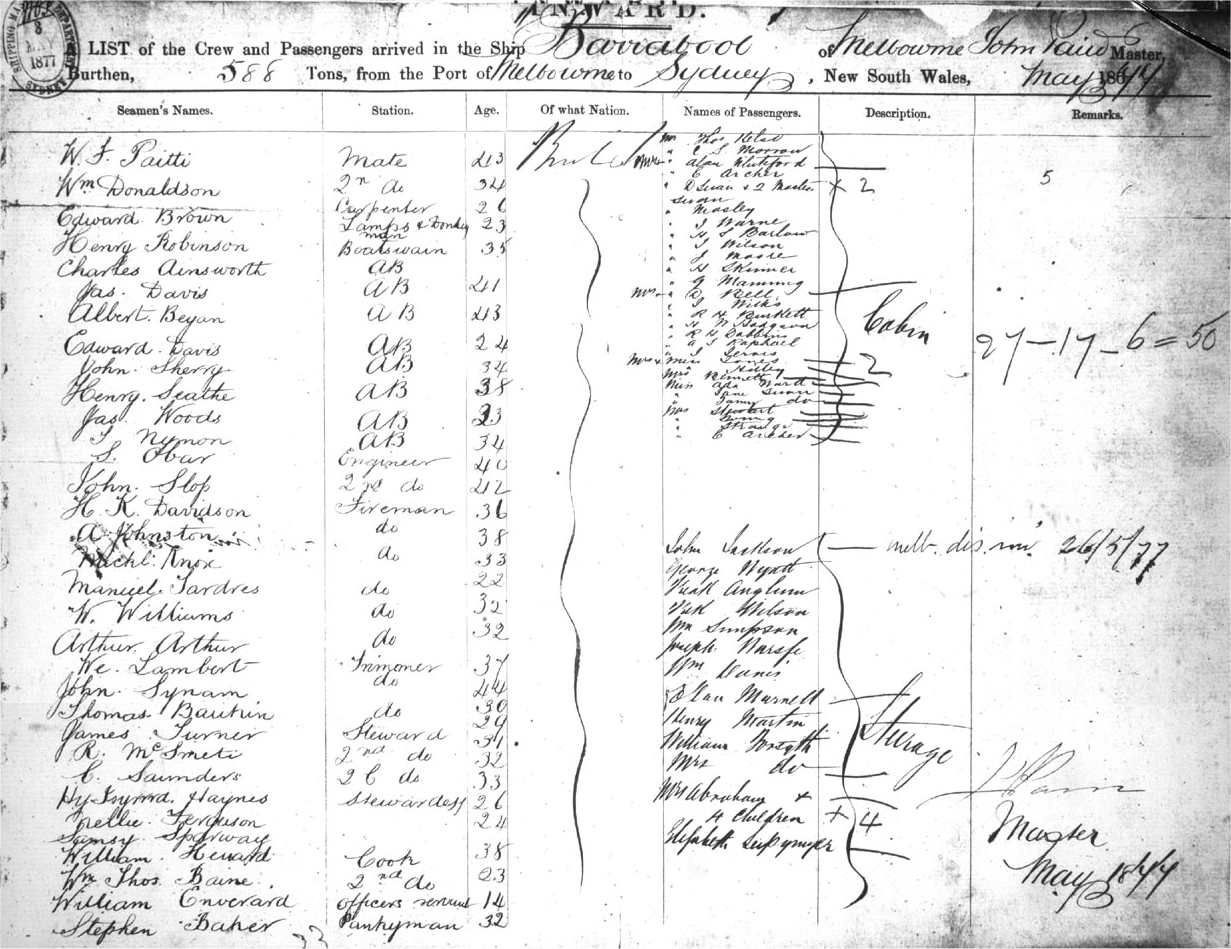 INWARD.
SHIPPING MASTER'S DEPARTMENT
8
MAY
1877
SYDNEY
A LIST of the Crew and Passengers arrived in the Ship Barrabool of Melbourne John Paird Master,
Burthen, 588 Tons, from the Port of Melbourne to Sydney, New South Wales, May 1877
Seamen's Names. Station. Age. Of what Nation. Names of Passengers. Description. Remarks.
W. F. Paitti Mate 43
Wm Donaldson 2nd do 34
Edward Brown Carpenter 26
Henry Robinson Lamps & Donkey man 23
Charles Ainsworth Boatswain 35
Jas. Davis AB
Albert. Beyan AB 41
Edward Davis AB 43
John. Sherry AB 24
Henry. Seathe AB 34
Jas. Woods AB 38
J Nymon AB 33
S. Obur AB 34
John. Slop Engineer 40
H. K. Davidson 2nd do 42
A Johnston Fireman 36
Knox do 38
Manuel. Sardres do 33
W. Williams do 22
Arthur. Arthur do 32
We. Lambert do 32
John. Synam Trimmer 37
Thomas. do 44
James Turner do 30
R. McSmeti Steward 29
C. Saunders 2nd do 31
Haynes 2 C do 32
Nellie. Ferguson Stewardess 33
Sparway 26
William. 24
Wm Thos. Baine. Cook 38
William Enverard 2nd do 23
Stephen Baker officers servant 14
Pantryman 32
Mr Thos Kelso
" C S Morrow
" Alan Whiteford
" C Archer
" D Swan & 2 Master + 2
Swan
" Mosley
" J Warne
" H S Barlow
" J Wilson
" J Moore
" H Skinner
" G Manning
Mrs " D Bell
" J Wilks
" R H Burkett
" H W Hodgson
" R H
" A S Raphael
" J
Mrs & Miss Jones 2
Mrs Bennett
Miss Ada Ward
" Jane Swan
" Fanny do
Mrs Stewart
" Young
" Strange
" C Archer
Cabin
5
27 – 17 – 6 = 50
John Jackson melb. dis. 26/5/77
George Wyatt
Anglum
Wilson
Wm Simpson
Joseph
Wm Davis
Murnell
Henry Martin
William Forsyth
Mrs do
Mrs Abraham &
4 Children + 4
Elizabeth
Sterage
Master
May 1877